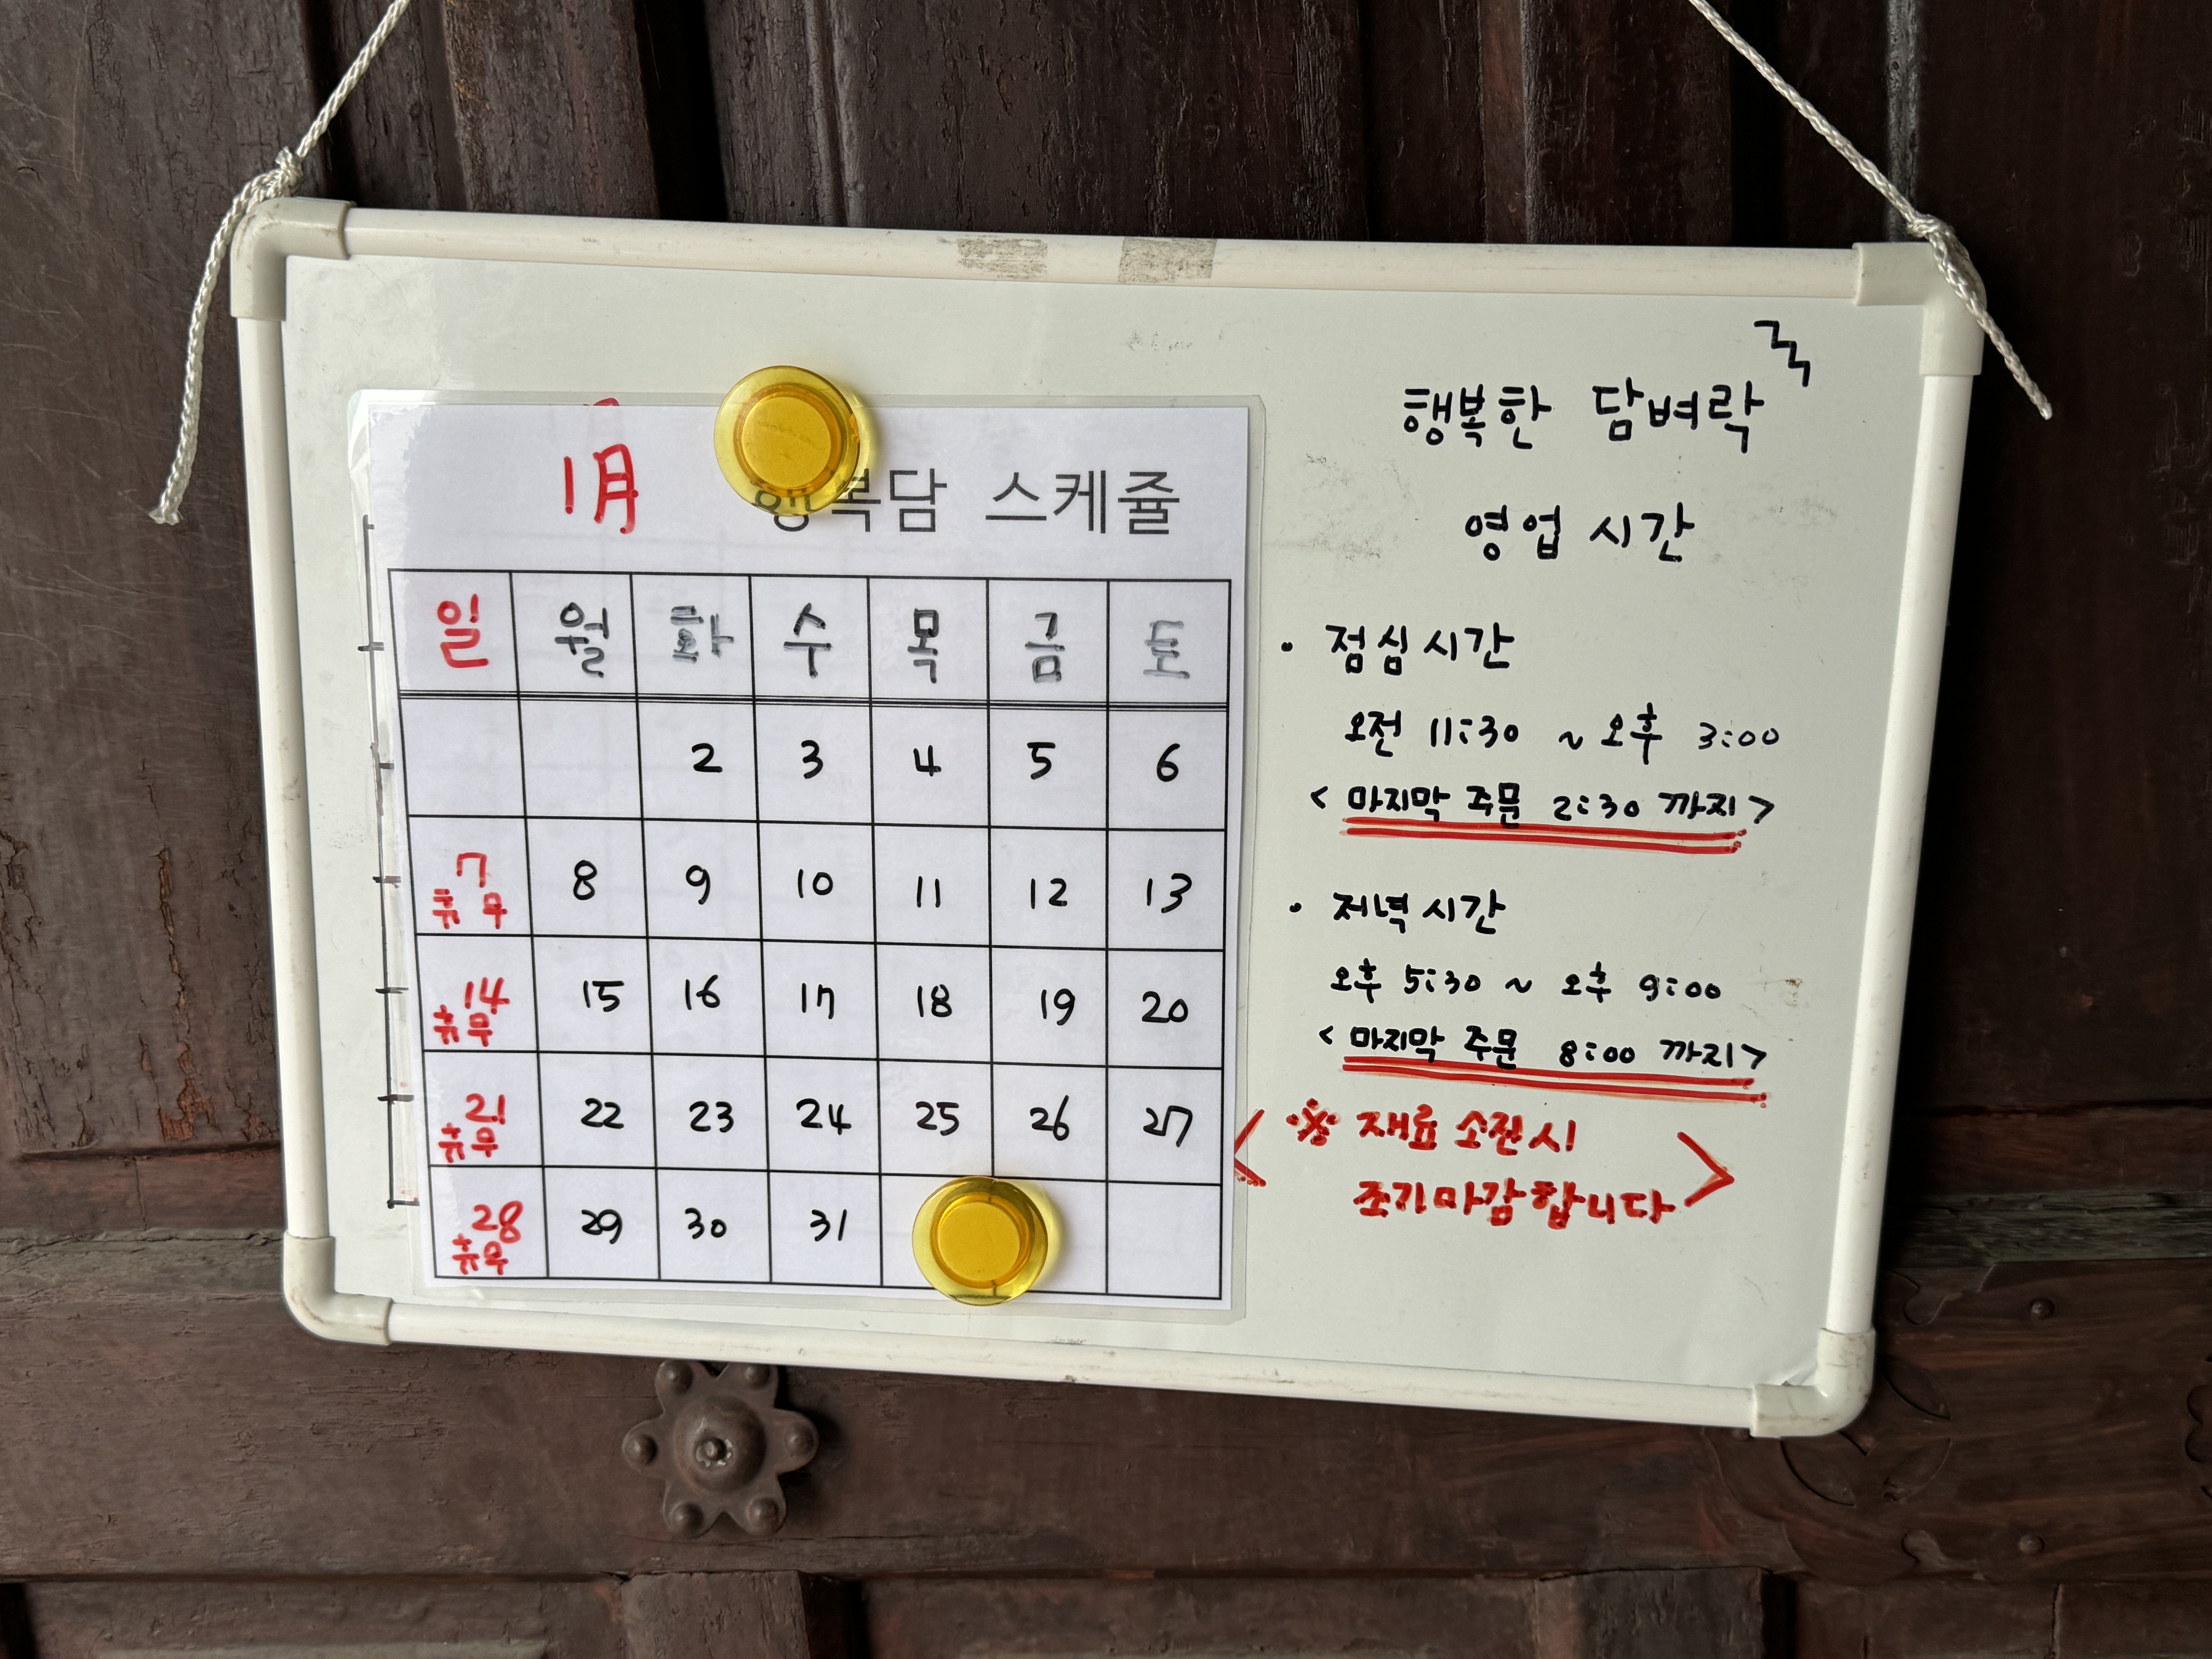 1月 행복담 스케쥴
일 월 화 수 목 금 토
2 3 4 5 6
7 8 9 10 11 12 13
휴무
14 15 16 17 18 19 20
휴무
21 22 23 24 25 26 27
휴무
28 29 30 31
휴무
행복한 담벼락
영업 시간
• 점심시간
오전 11:30 ~ 오후 3:00
< 마지막 주문 2:30 까지 >
• 저녁시간
오후 5:30 ~ 오후 9:00
< 마지막 주문 8:00 까지 >
< ※ 재료 소진시
조기마감합니다 >